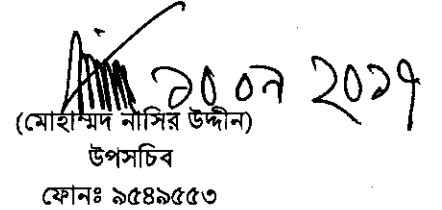 ১০ ০৭ ২০১৭
(মোহাম্মদ নাসির উদ্দীন)
উপসচিব
ফোনঃ ৯৫৪৯৫৫৩